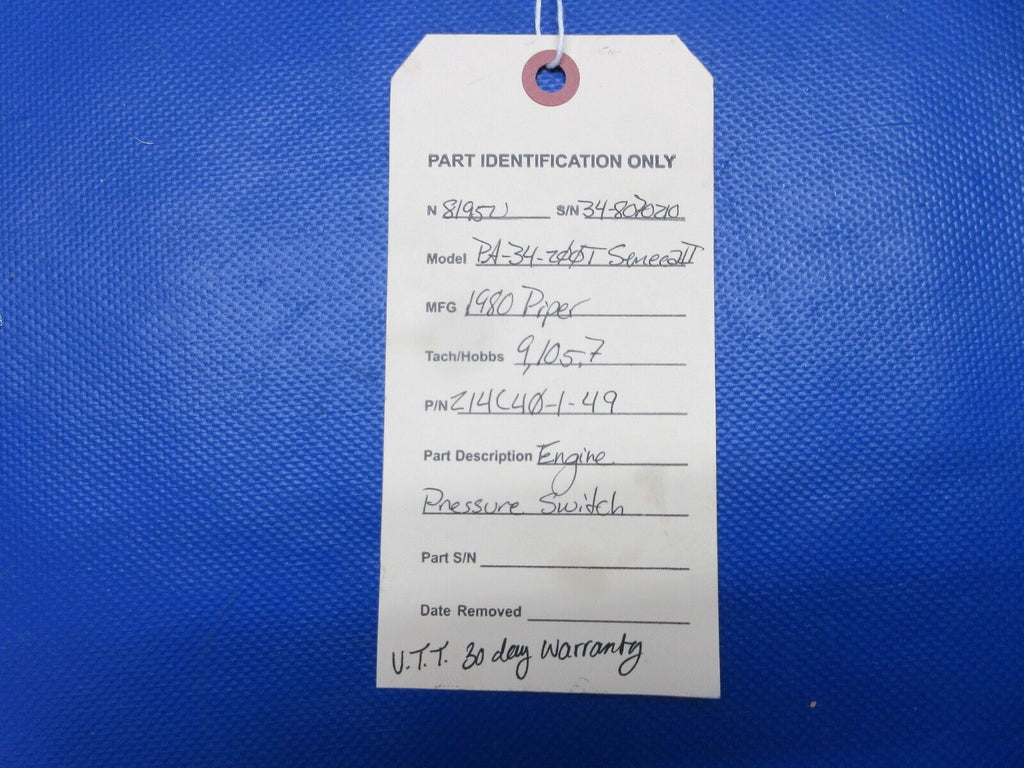 PART IDENTIFICATION ONLY
N 8195U S/N 34-8070210
Model PA-34-200T Seneca II
MFG 1980 Piper
Tach/Hobbs 9,105.7
P/N 214C40-1-49
Part Description Engine
Pressure Switch
Part S/N
Date Removed
U.T.T. 30 day Warranty